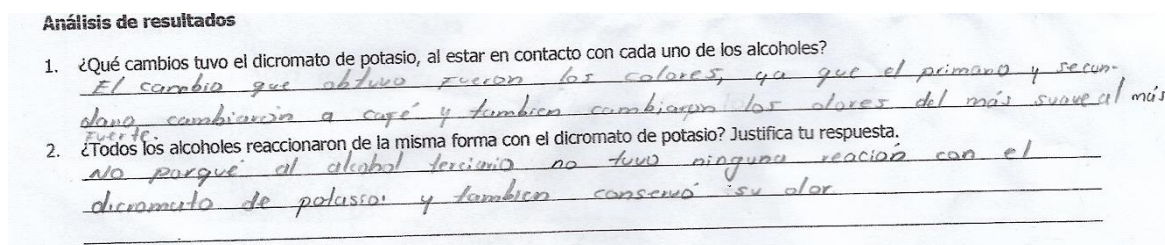 Análisis de resultados
1. ¿Qué cambios tuvo el dicromato de potasio, al estar en contacto con cada uno de los alcoholes?
El cambio que obtuvo fueron los colores, ya que el primario y secun-
dario cambiarón a café y tambien cambiaron los olores del más suave al más
fuerte.
2. ¿Todos los alcoholes reaccionaron de la misma forma con el dicromato de potasio? Justifica tu respuesta.
No porqué al alcohol terciario no tuvo ninguna reacion con el
dicromato de potassio y tambien conservó su olor